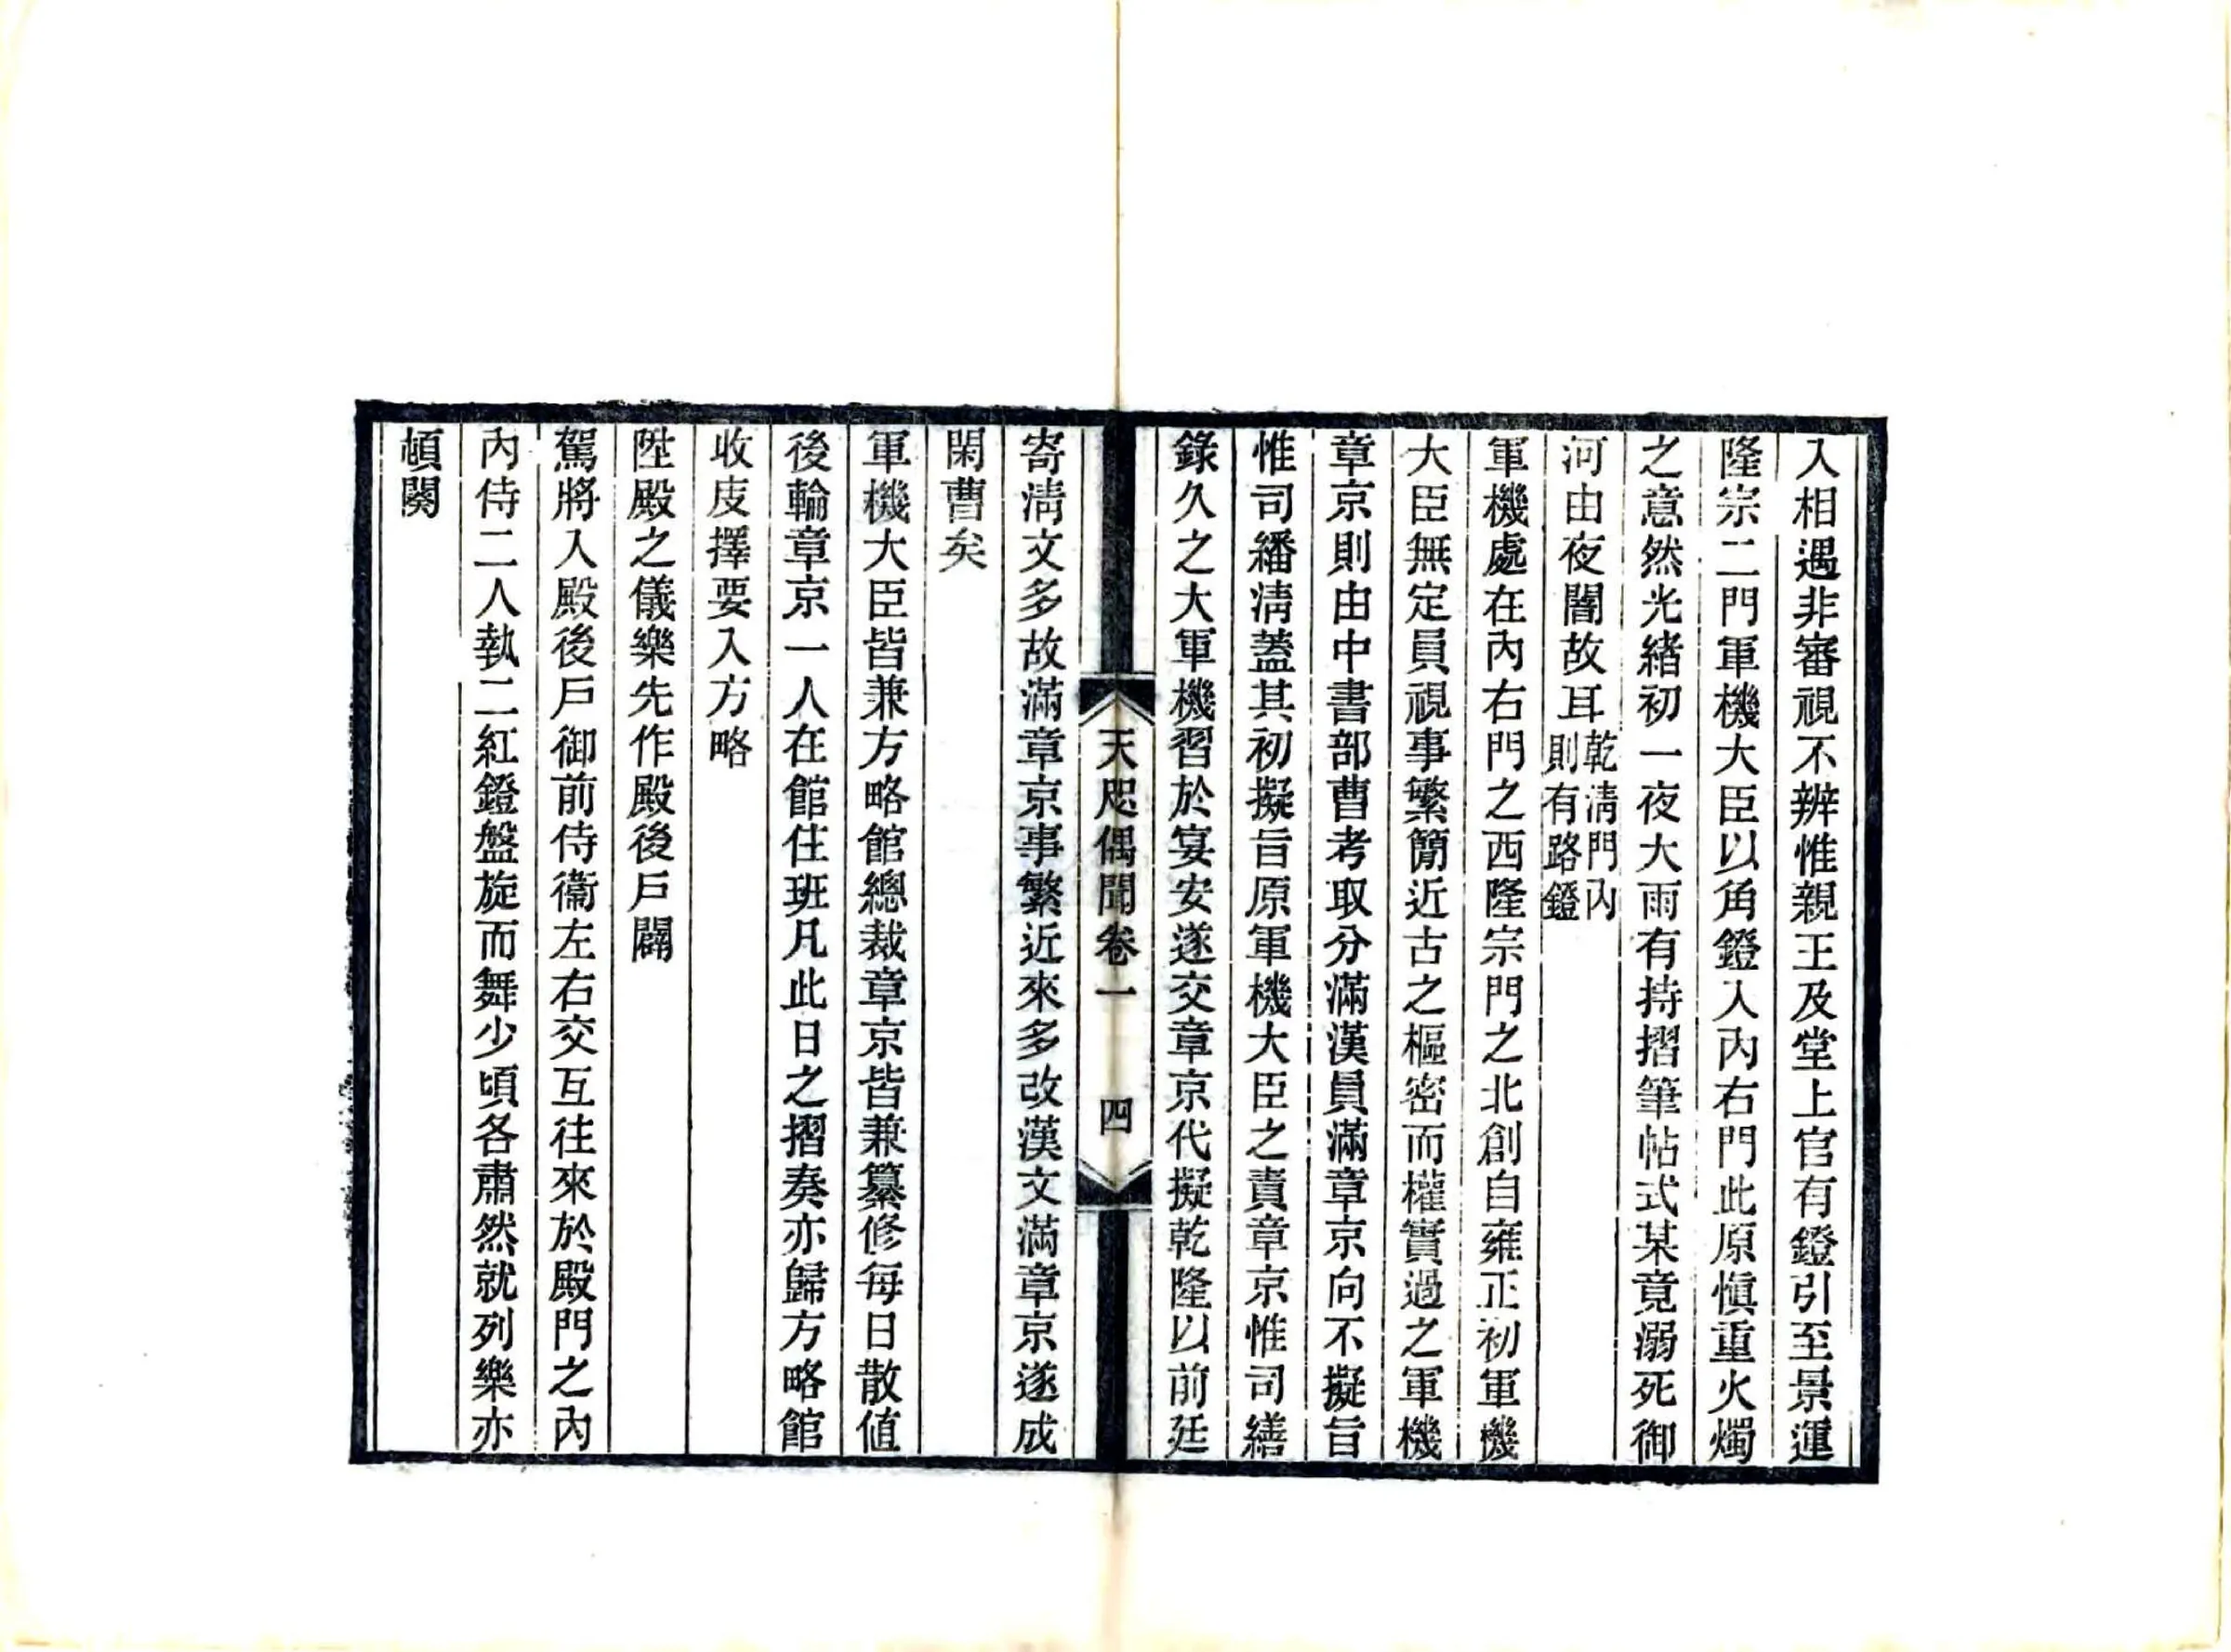 入相遇非審視不辨惟親王及堂上官有鐙引至景運
隆宗二門軍機大臣以角鐙入內右門此原愼重火燭
之意然光緒初一夜大雨有持摺筆帖式某竟溺死御
河由夜闇故耳乾淸門內則有路鐙
軍機處在內右門之西隆宗門之北創自雍正初軍機
大臣無定員視事繁簡近古之樞密而權實過之軍機
章京則由中書部曹考取分滿漢員滿章京向不擬旨
惟司繙淸蓋其初擬旨原軍機大臣之責章京惟司繕
錄久之大軍機習於宴安遂交章京代擬乾隆以前廷
天咫偶聞卷一 四
寄淸文多故滿章京事繁近來多改漢文滿章京遂成
閑曹矣
軍機大臣皆兼方略館總裁章京皆兼纂修每日散値
後輪章京一人在館住班凡此日之摺奏亦歸方略館
收庋擇要入方略
陞殿之儀樂先作殿後戶闢
駕將入殿後戶御前侍衞左右交互往來於殿門之內
內侍二人執二紅鐙盤旋而舞少頃各肅然就列樂亦
頓闋